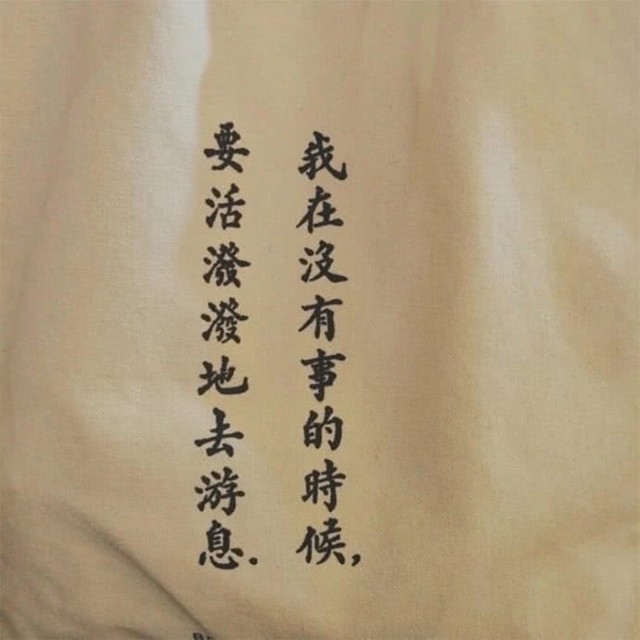 我在沒有事的時候，
要活潑潑地去游息.